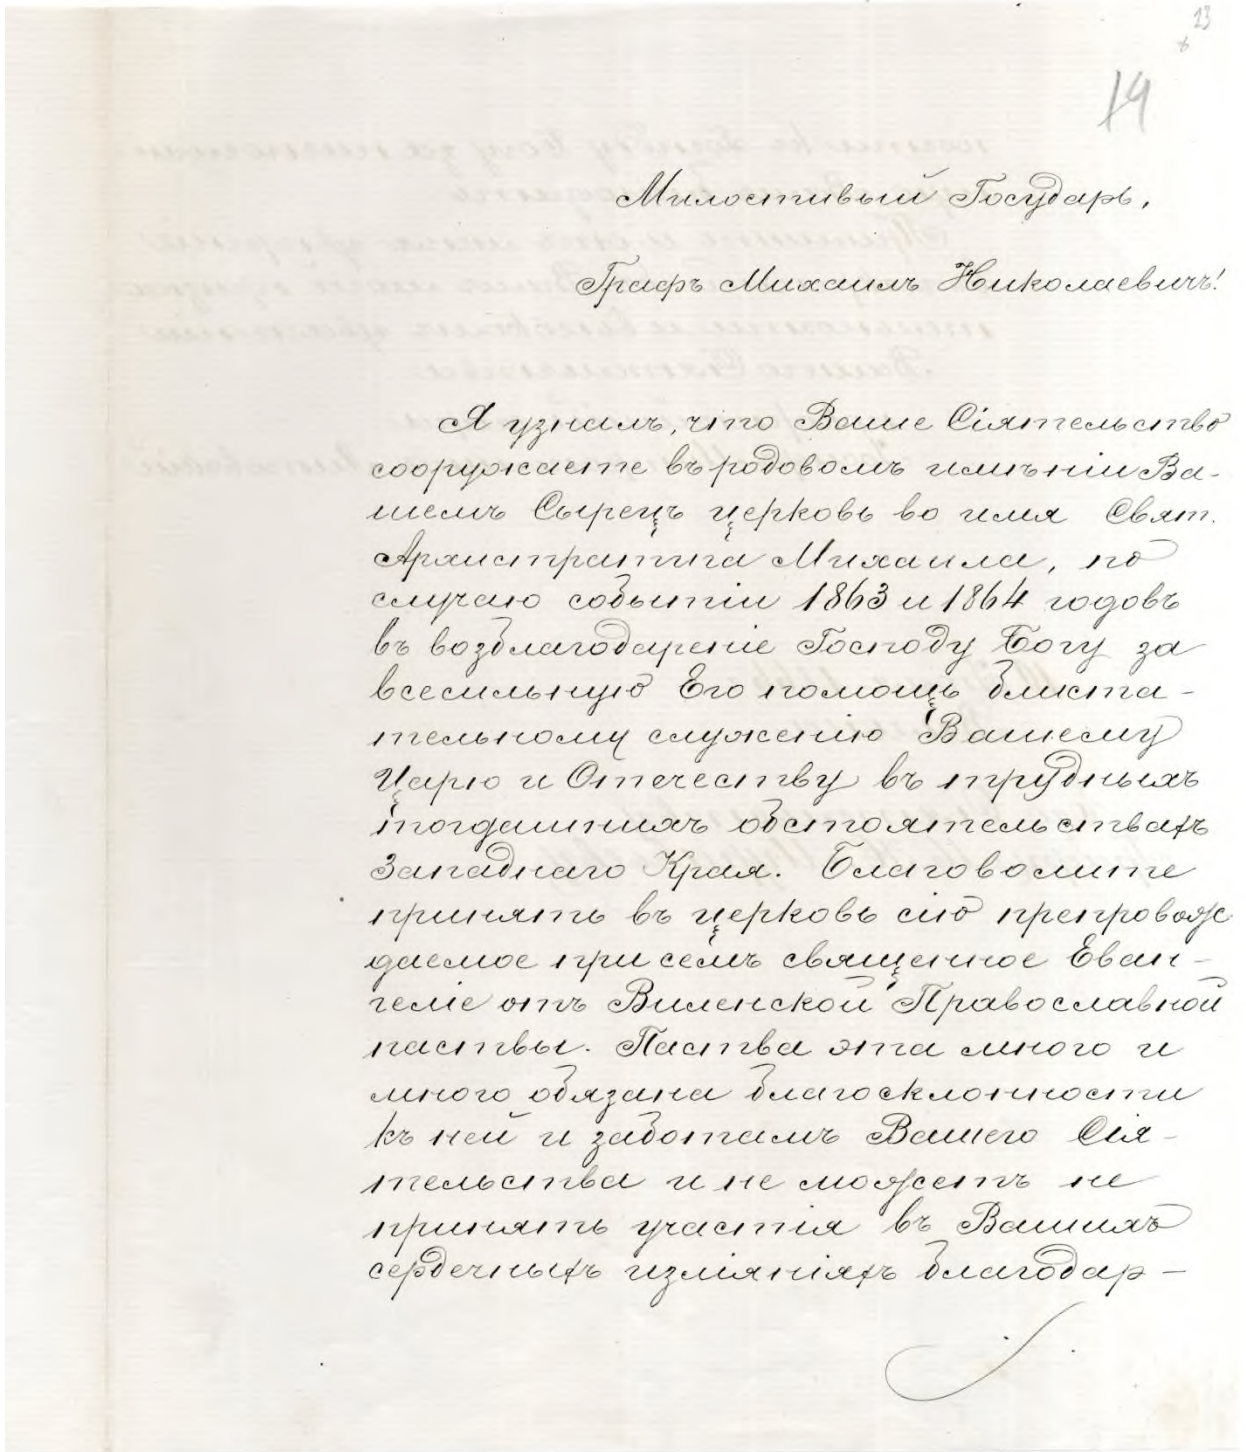 23
19
Милостивый Государь,
Графъ Михаилъ Николаевичъ!
Я узналъ, что Ваше Сіятельство
сооружаете въ родовомъ имѣніи Ва-
шемъ Сырецъ церковь во имя Свят.
Архистратига Михаила, по
случаю событіи 1863 и 1864 годовъ
въ возблагодареніе Господу Богу за
всесильную Его помощь блиста-
тельному служенію Вашему
Царю и Отечеству въ трудныхъ
тогдашнихъ обстоятельствахъ
Западнаго Края. Благоволите
принять въ церковь сію препровож
даемое при семъ священное Еван-
геліе отъ Виленской Православной
паствы. Паства эта много и
много обязана благосклонности
къ ней и заботамъ Вашего Сія-
тельства и не можетъ не
принять участія въ Вашихъ
сердечныхъ изліяніяхъ благодар-